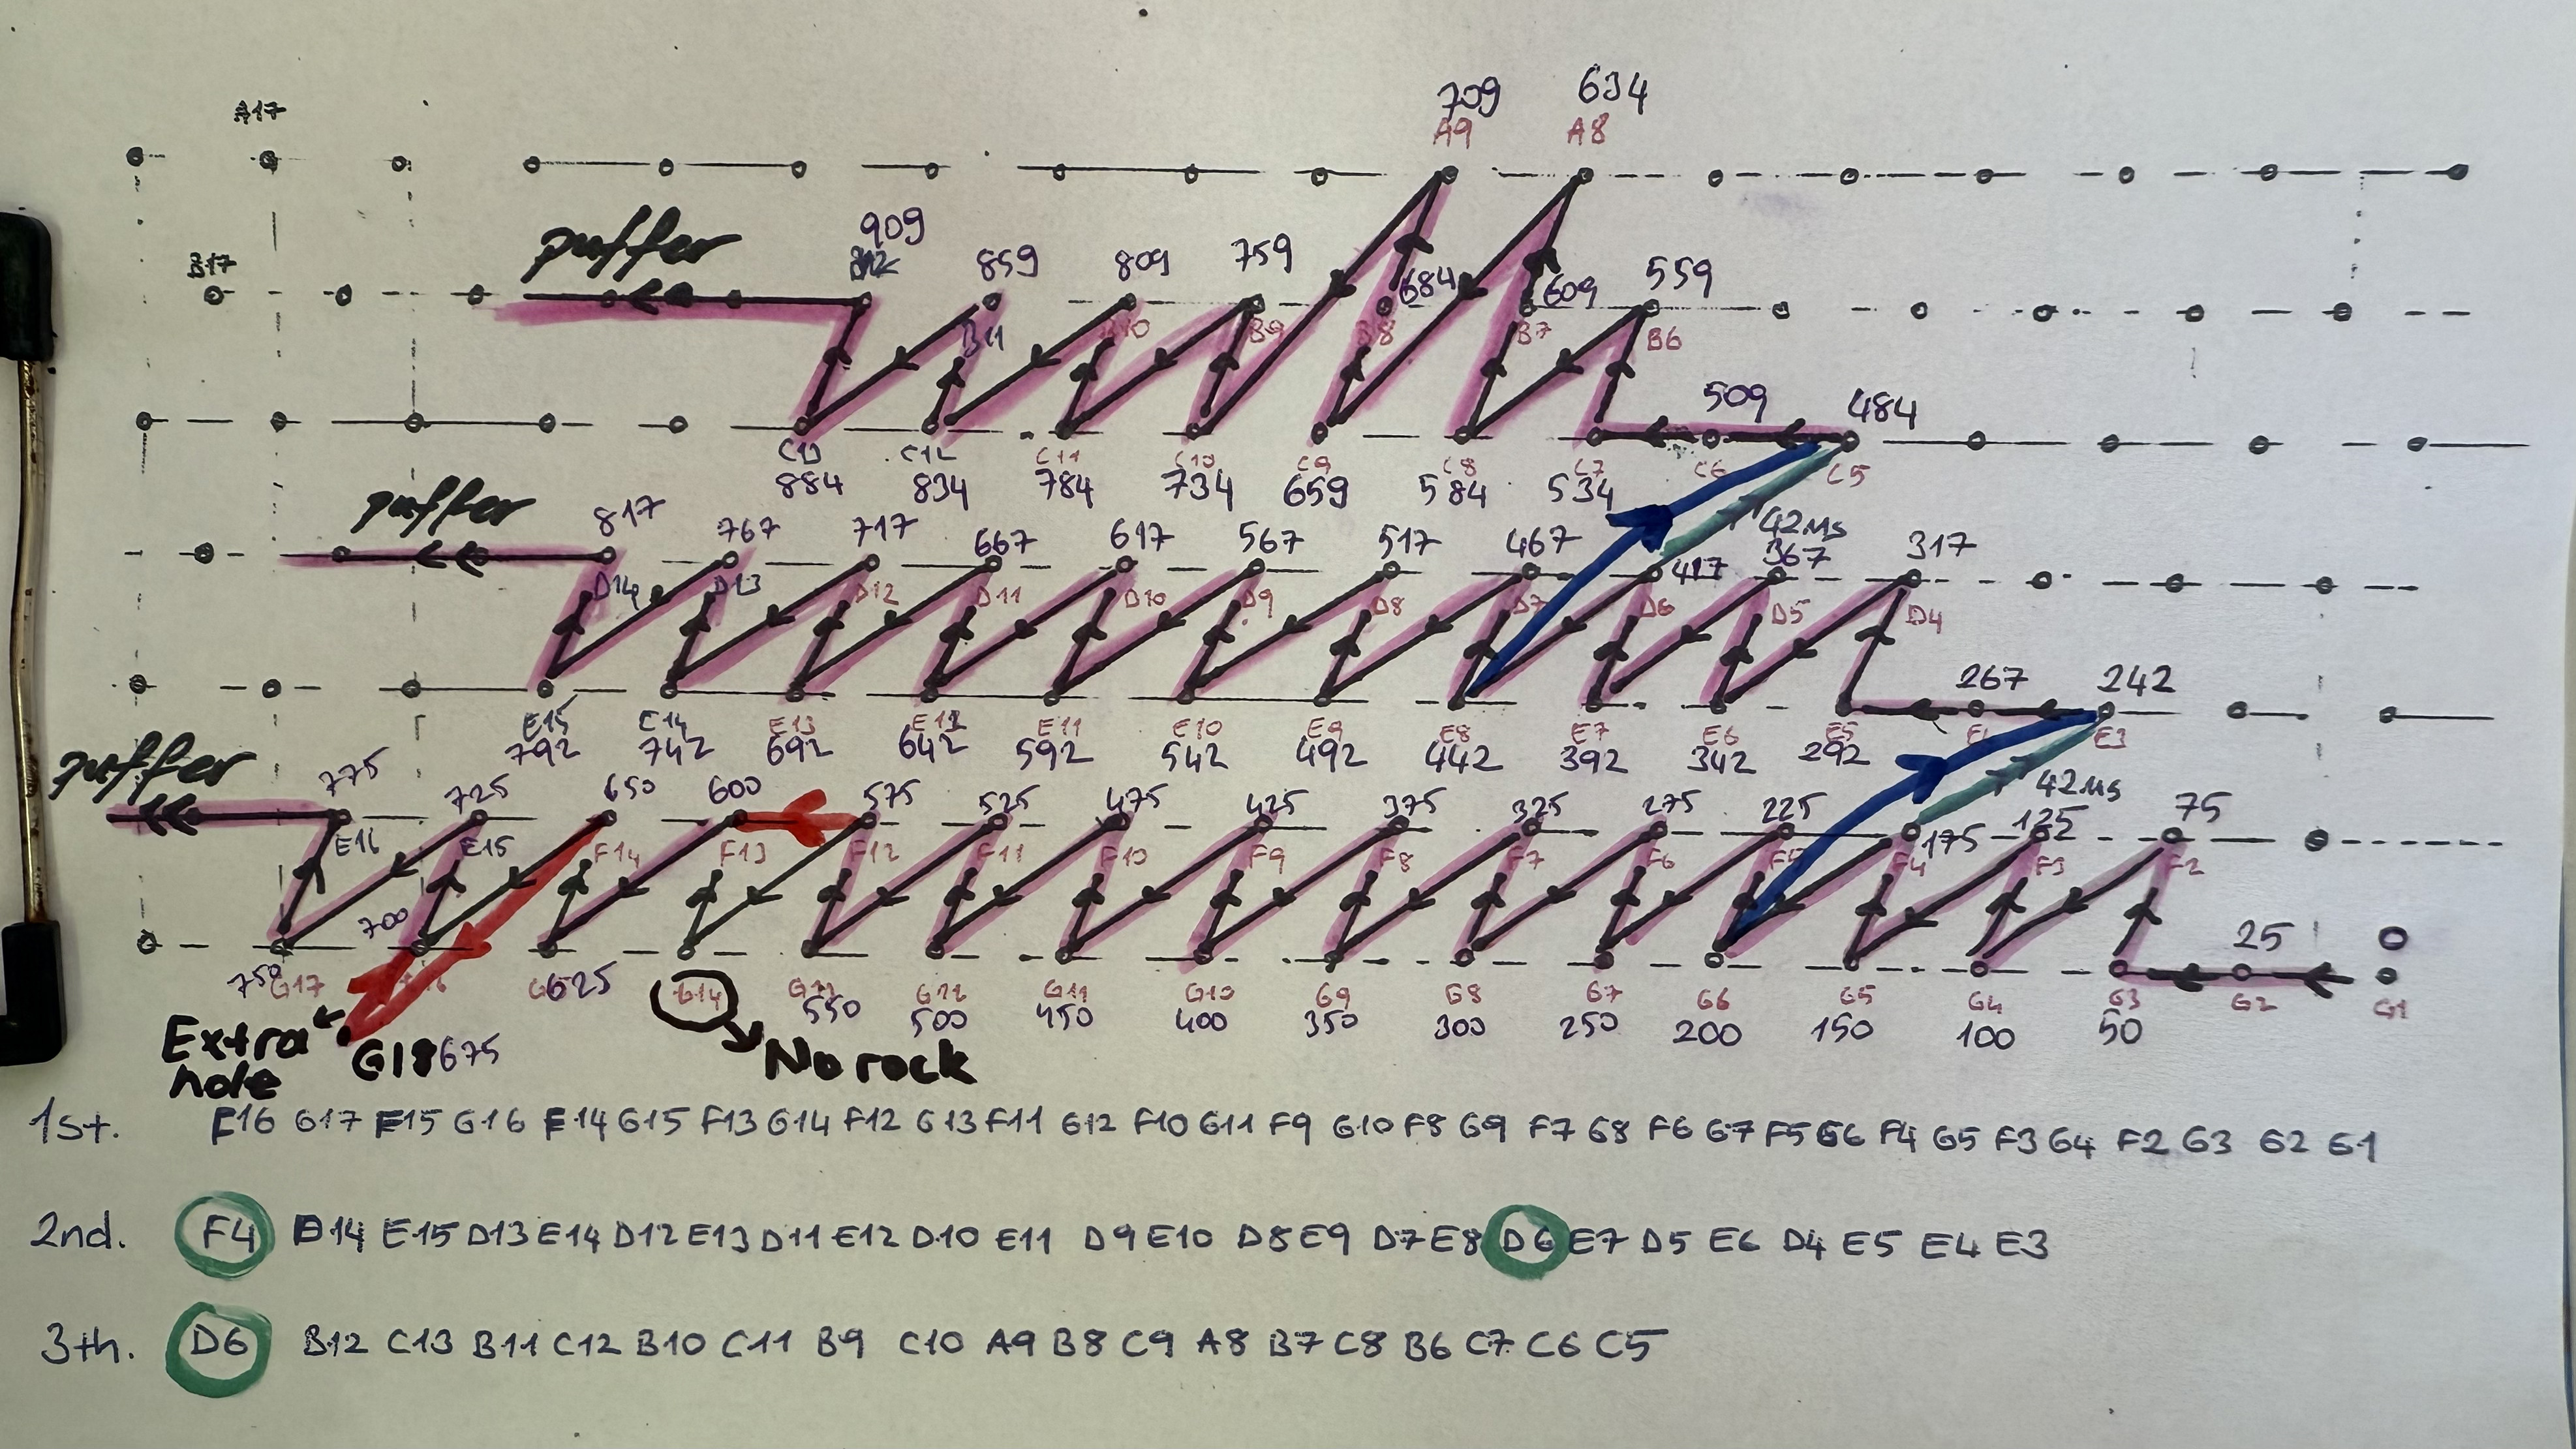 709 634
A17 A9 A8
909
puffer B12 859 809 759 684 609 559
B17
B11 B10 B9 B8 B7 B6
509 484
C13 C12 C11 C10 C9 C8 C7 C6 C5
884 834 784 734 659 584 534
puffer 817 767 717 667 617 567 517 467 417 42ms 367 317
D14 D13 D12 D11 D10 D9 D8 D7 D6 D5 D4
267 242
E15 E14 E13 E12 E11 E10 E9 E8 E7 E6 E5 E4 E3
792 742 692 642 592 542 492 442 392 342 292
puffer 775 725 650 600 575 525 475 425 375 325 275 225 175 42ms 125 75
E16 E15 F14 F13 F12 F11 F10 F9 F8 F7 F6 F5 F4 F3 F2
700 25
G17 G14 G13 G12 G11 G10 G9 G8 G7 G6 G5 G4 G3 G2 G1
750 625 550 500 450 400 350 300 250 200 150 100 50
Extra hole G18 675
No rock
1st. F16 G17 F15 G16 F14 G15 F13 G14 F12 G13 F11 G12 F10 G11 F9 G10 F8 G9 F7 G8 F6 G7 F5 G6 F4 G5 F3 G4 F2 G3 G2 G1
2nd. F4 D14 E15 D13 E14 D12 E13 D11 E12 D10 E11 D9 E10 D8 E9 D7 E8 D6 E7 D5 E6 D4 E5 E4 E3
3th. D6 B12 C13 B11 C12 B10 C11 B9 C10 A9 B8 C9 A8 B7 C8 B6 C7 C6 C5